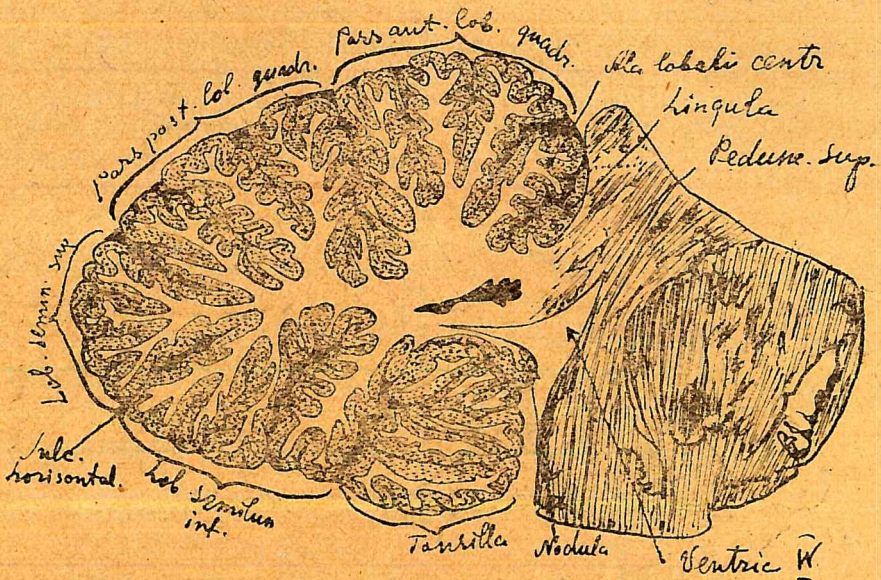 Pars ant. lob. quadr.
Pars post. lob. quadr.
Ala lobalis centr
Lingula
Pedunc. Sup.
Lob. semin. sup
Sulc.
horisontal.
Lob semilun
inf.
Tonsilla
Nodula
Ventric IV